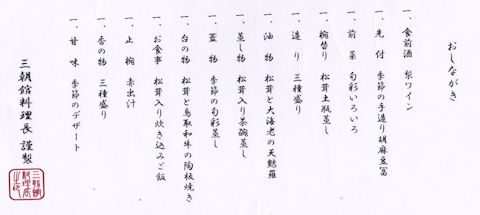 おしながき
一、食前酒 梨ワイン
一、先付 季節の手造り胡麻豆冨
一、前菜 旬彩いろいろ
一、椀替り 松茸土瓶蒸し
一、造り 三種盛り
一、油物 松茸と大海老の天麩羅
一、蒸し物 松茸入り茶碗蒸し
一、蓋物 季節の旬彩
一、台の物 松茸と鳥取和牛の陶板焼き
一、お食事 松茸入り炊き込みご飯
一、止椀 赤出汁
一、香の物 三種盛り
一、甘味 季節のデザート
三朝館料理長 謹製